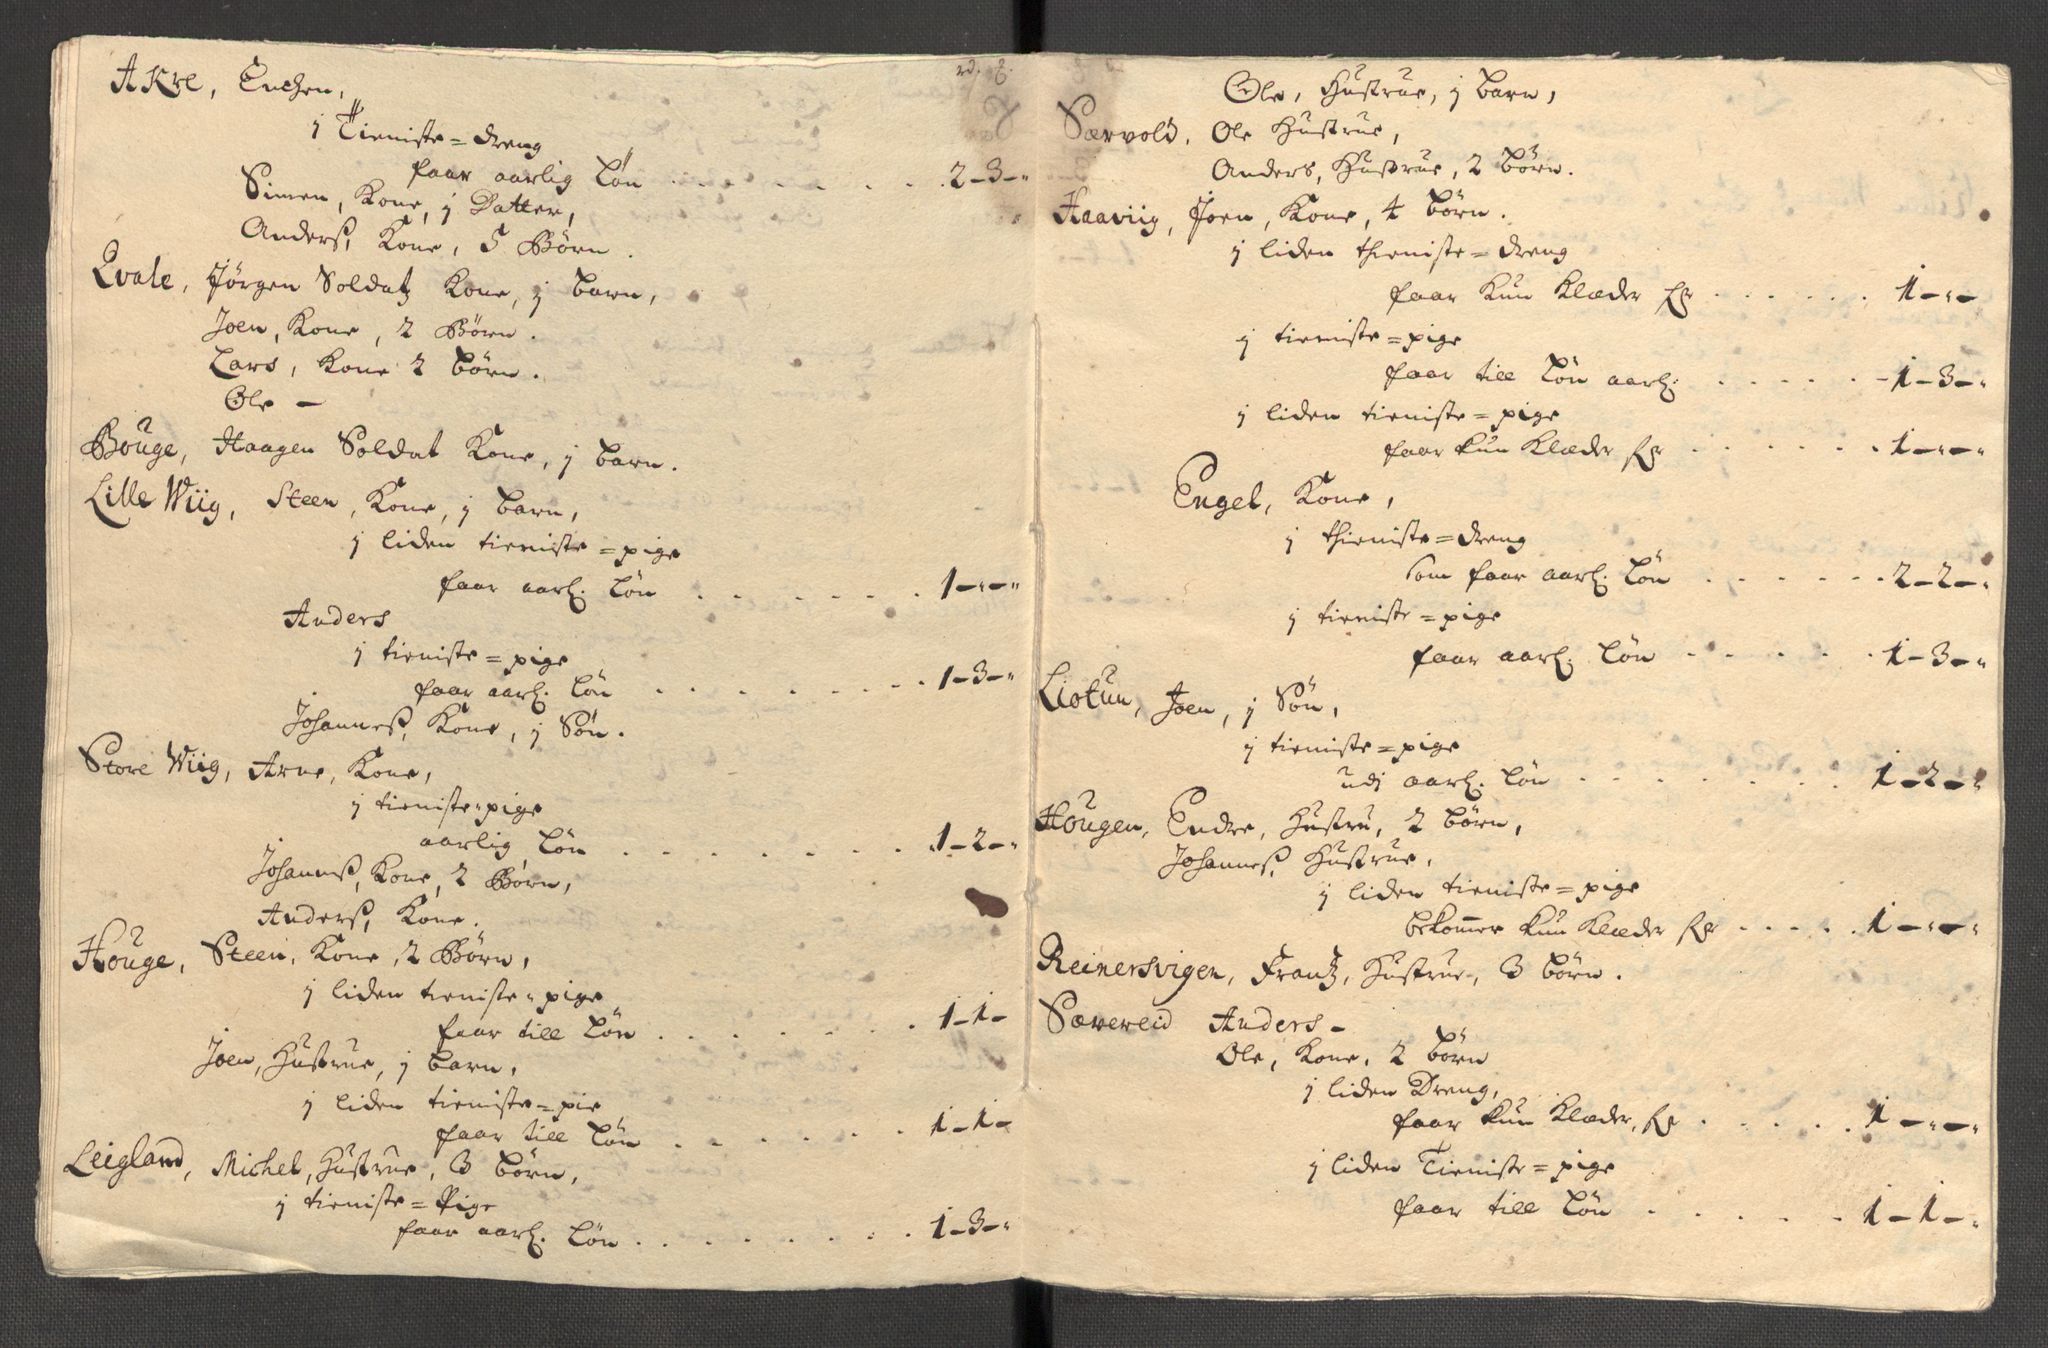 rd. ȝ.
Akre, Enchen,
j Tieniste=dreng
faar aarlig Løn . . . . . . . . 2-3-"
Simen, Kone, j Datter,
Anderß, Kone, 5 Børn.
Qvale, Jørgen Soldat, Kone, j barn,
Joen, Kone, 2 Børn.
Lars, Kone 2 børn.
Ole —
Bouge, Haagen Soldat Kone, j barn.
Lille Wiig, Steen, Kone, j barn,
j liden tieniste=pige
faar aarl. Løn . . . . . . 1-"-"
Anders
j tieniste=pige
faar aarl. Løn . . . . . . . . 1-3-"
Johanneß, Kone, j Søn.
Store Wiig, Arne, Kone,
j tieniste=pige
aarlig Løn . . . . . . . . 1-2-"
Johanneß, Kone, 2 Børn,
Anderß, Kone.
Houge, Steen, Kone, 2 Børn,
j liden tieniste=pige
faar till Løn . . . . . . . 1-1-
Joen, Hustrue, j barn,
j liden tieniste=pie
faar till Løn . . . . . . 1-1-
Leigland, Michel, Hustrue, 3 børn,
j tieniste=Pige
faar aarl. Løn . . . . . . . . 1-3-"
Ole, Hustrue, j barn,
Særvold, Ole Hustrue,
Anders, Hustrue, 2 børn.
Haaviig, Joen, Kone, 4 børn.
j liden thieniste=dreng
faar kun Klæder for . . . . . . 1-"-
j tieniste=pige
faar till Løn aarl. . . . . . 1-3-"
j liden tieniste=pige
faar kun Klæder for . . . . . . 1-"-"
Engel, Kone,
j thieniste=dreng
som faar aarl. Løn . . . . . . 2-2-"
j tieniste=pige
faar aarl. Løn . . . . . . 1-3-"
Liotun, Joen, j Søn,
j tieniste=pige
udj aarl. Løn . . . . . . . 1-2-"
Hougen, Endre, Hustru, 2 børn,
Johanneß, Hustrue,
j liden tieniste=pige
bekommer kun Klæder for . . . . . 1-"-"
Reinersvigen, Frantz, Hustrue, 3 børn.
Særereid Anders —
Ole, Kone, 2 børn
j liden Dreng,
faar kun Klæder, for . . . . . 1-"-"
j liden Tieniste=pige
faar till Løn . . . . . 1-1-"